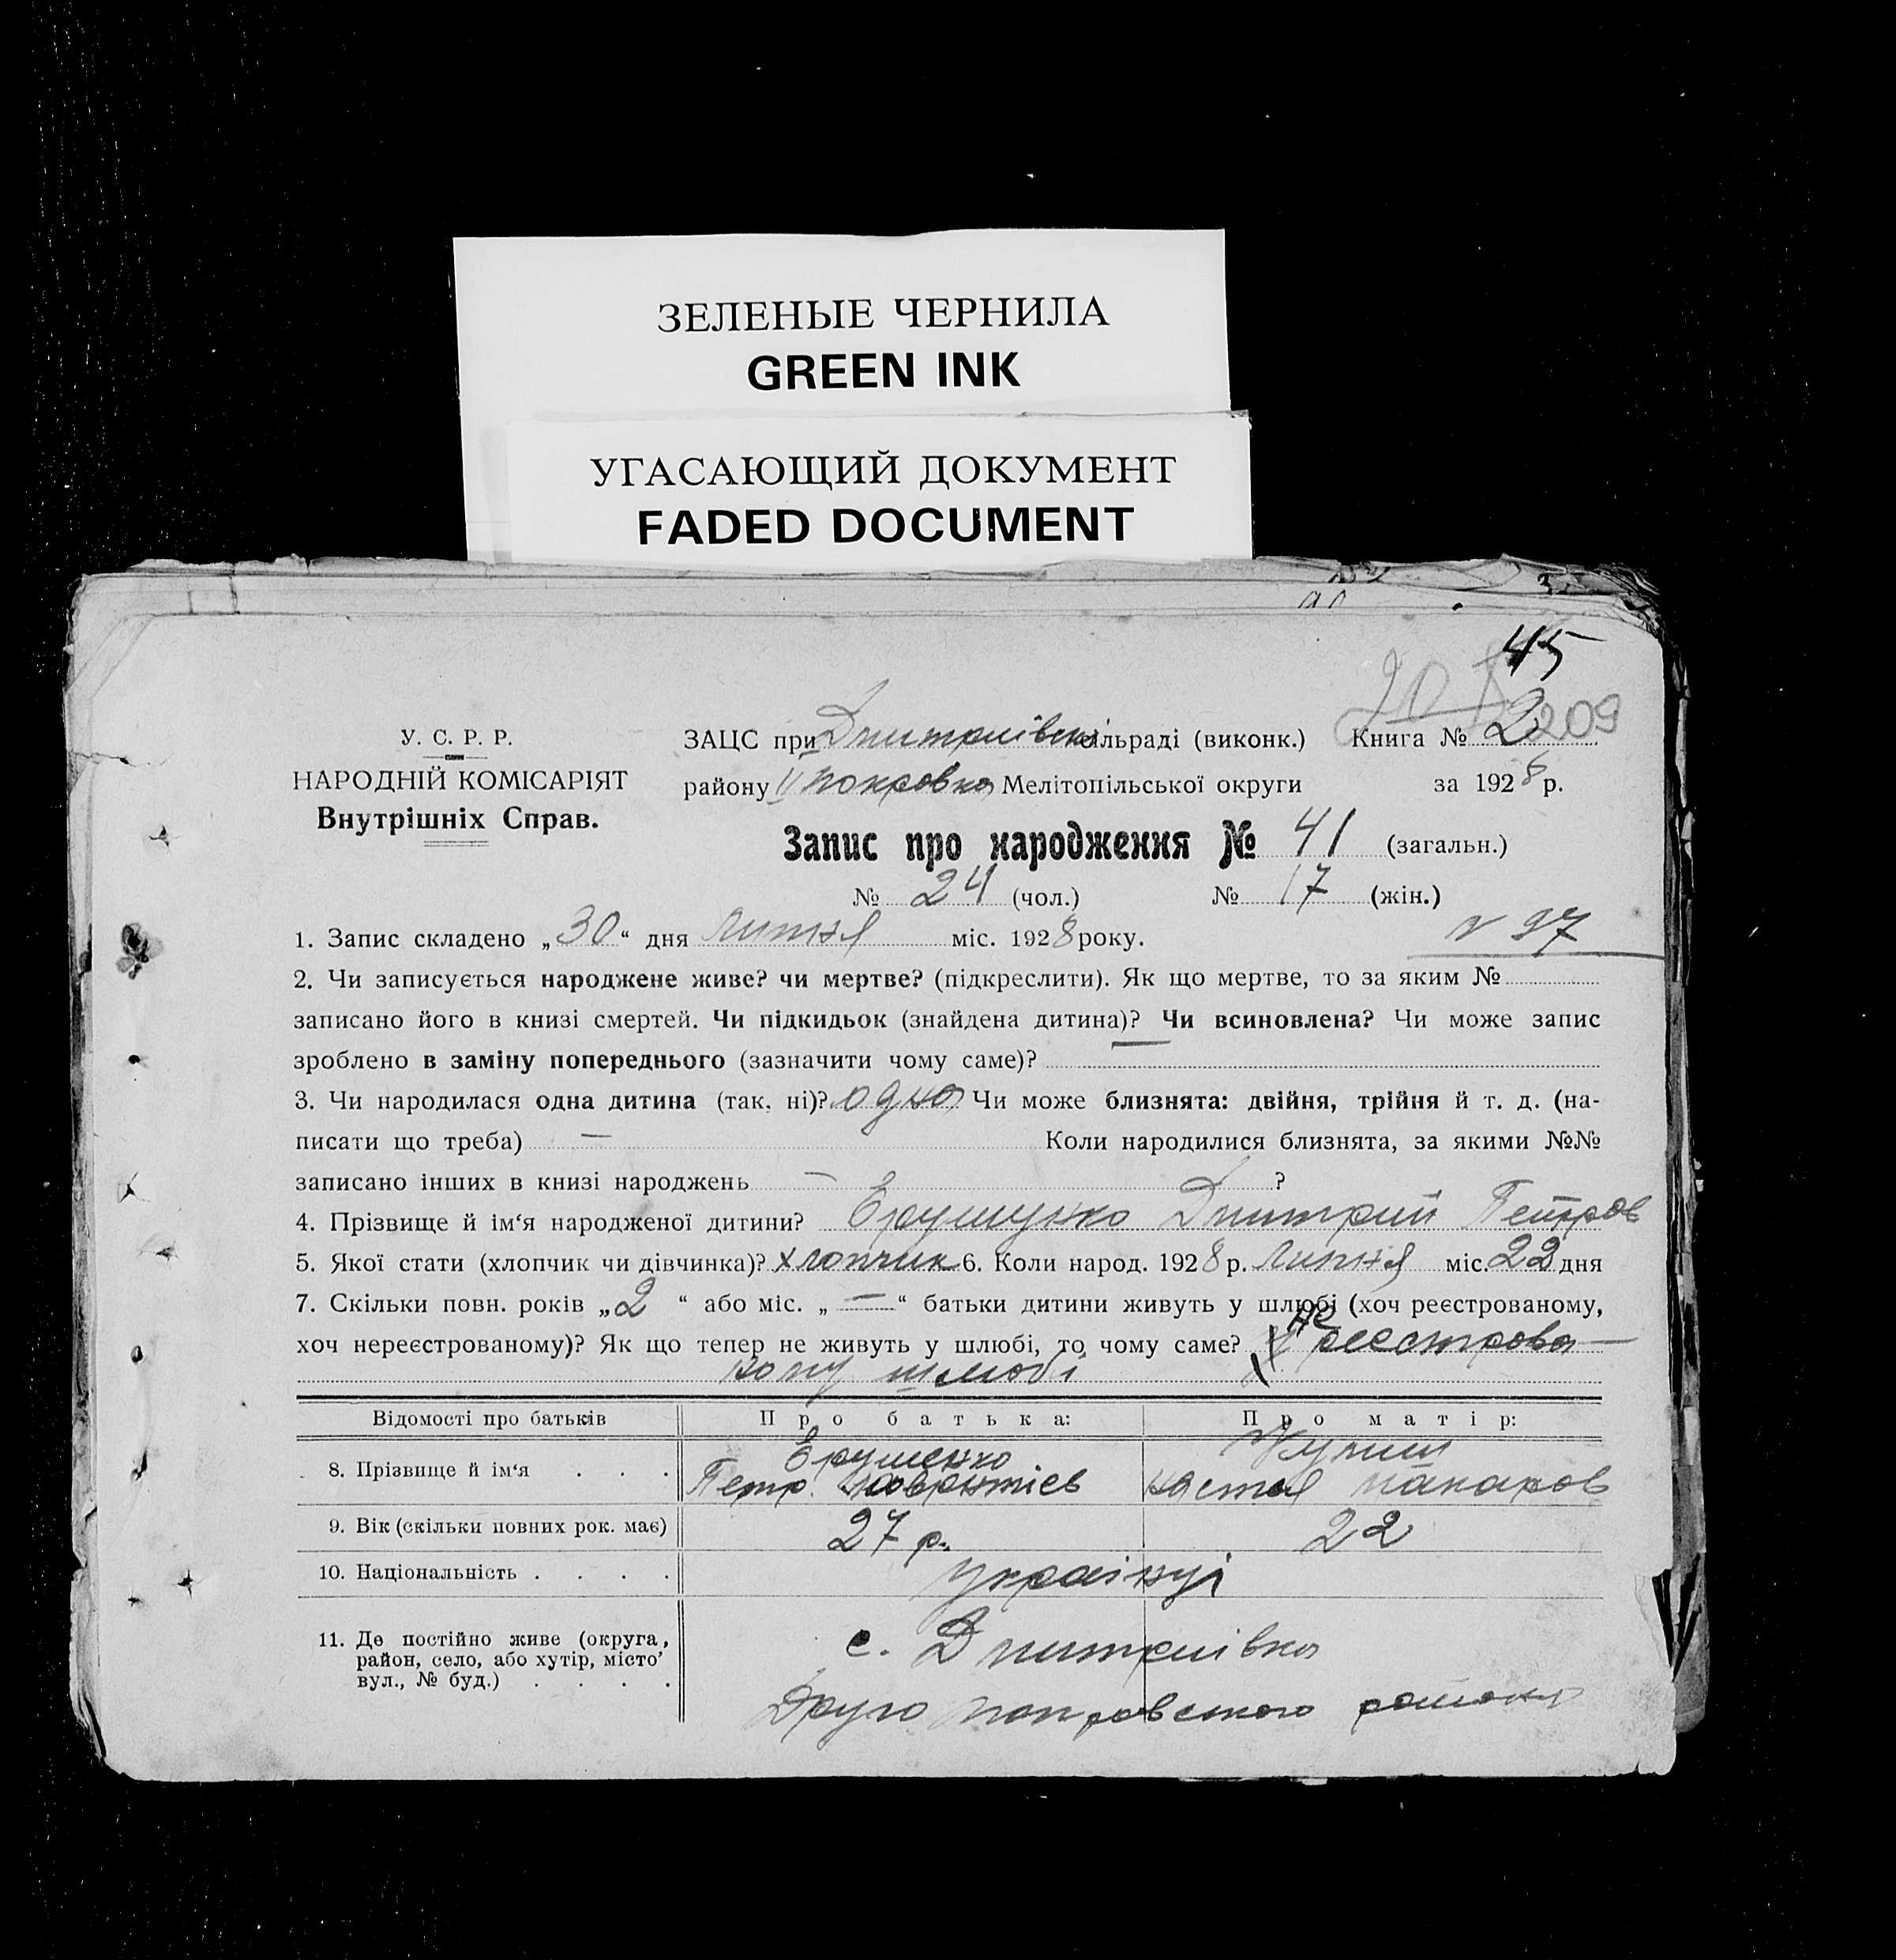 ЗЕЛЕНЫЕ ЧЕРНИЛА
GREEN INK
УГАСАЮЩИЙ ДОКУМЕНТ
FADED DOCUMENT
45
209
У. С. Р. Р.
НАРОДНІЙ КОМІСАРІЯТ
Внутрішніх Справ.
ЗАЦС при Дмитрівські сільраді (виконк.) Книга № 2
району ІІ Покровка Мелітопільської округи за 1928 р.
Запис про народження № 41 (загальн.)
№ 24 (чол.) № 17 (жін.)
1. Запис складено „30“ дня Липня міс. 1928 року.
№ 97
2. Чи записується народжене живе? чи мертве? (підкреслити). Як що мертве, то за яким №
записано його в книзі смертей. Чи підкидьок (знайдена дитина)? Чи всиновлена? Чи може запис
зроблено в заміну попереднього (зазначити чому саме)?
3. Чи народилася одна дитина (так, ні)? одна Чи може близнята: двійня, трійня й т. д. (на-
писати що треба) — Коли народилися близнята, за якими №№
записано інших в книзі народжень — ?
4. Прізвище й ім‘я народженої дитини? Дмитрий Петров
5. Якої стати (хлопчик чи дівчинка)? хлопчик 6. Коли народ. 1928 р. Липня міс. 22 дня
7. Скільки повн. років „2“ або міс. „—“ батьки дитини живуть у шлюбі (хоч реєстрованому,
хоч нереєстрованому)? Як що тепер не живуть у шлюбі, то чому саме? У не реєстрова-
ному шлюбі
Відомості про батьків Про батька: Про матір:
8. Прізвище й ім‘я . . . Єрушенко
Петро Лаврентієв Настя Макаров
9. Вік (скільки повних рок. має) 27 р. 22
10. Національність . . . . українці
11. Де постійно живе (округа,
район, село, або хутір, місто
вул., № буд.) . . . .
с. Дмитрівка
Друго покровского района